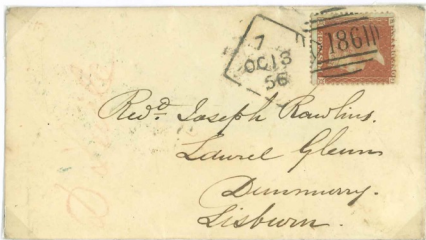 7
OC 13
56
186
Revd. Joseph Rawlins.
Laurel Glenn
Dunmurry.
Lisburn.